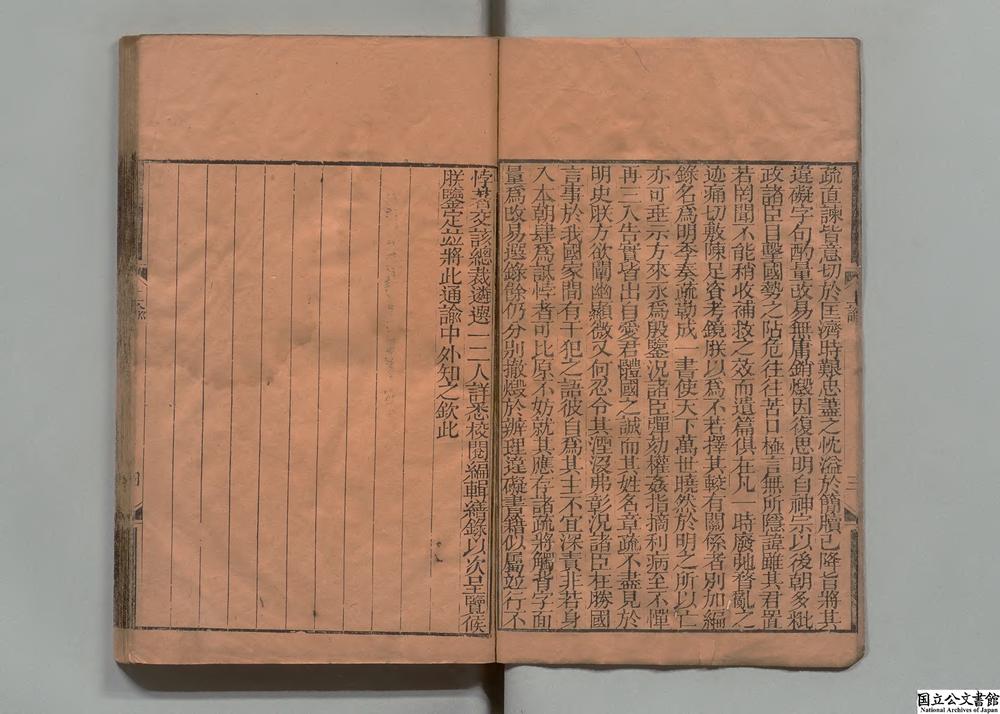 疏直諫皆意切於匡濟時艱忠藎之忱溢於簡牘已降旨將其
違礙字句酌量改易無庸銷燬因復思明自神宗以後朝多粃
政諸臣目擊國勢之阽危往往苦口極言無所隱諱雖其君置
若罔聞不能稍收補救之效而遺篇俱在凡一時廢弛瞀亂之
迹痛切敷陳足資考鏡朕以為不若擇其較有關係者別加編
錄名為明季奏疏勒成一書使天下萬世曉然於明之所以亡
亦可垂示方來永為殷鑒況諸臣彈劾權姦指摘利病至不憚
再三入告實皆出自愛君體國之誠而其姓名章疏不盡見於
明史朕方欲闡幽顯微又何忍令其湮沒弗彰況諸臣在勝國
言事於我國家間有干犯之語彼自為其主不宜深責非若身
入本朝肆為詆悖者可比原不妨就其應存諸疏將觸背字面
量為改易選錄餘仍分別撤燬於辦理違礙書籍似屬並行不
悖著交該總裁遴選一二人詳悉校閱編輯繕錄以次呈覽候
朕鑒定並將此通諭中外知之欽此
国立公文書館
National Archives of Japan